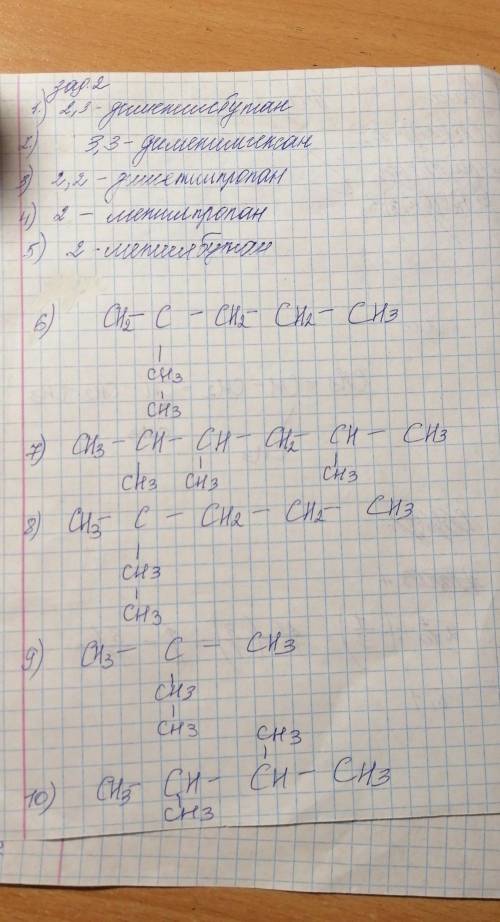 зад.2
1.) 2,3 - диметилбутан
2.) 3,3 - диметилгексан
3) 2,2 - диметилпропан
4) 2 - метилпропан
5) 2 - метилбутан
6) CH2 - C - CH2 - CH2 - CH3
CH3
CH3
7) CH3 - CH - CH - CH2 - CH - CH3
CH3 CH3 CH3
8) CH3 - C - CH2 - CH2 - CH3
CH3
CH3
9) CH3 - C - CH3
CH3
CH3
CH3
10) CH3 - CH - CH - CH3
CH3